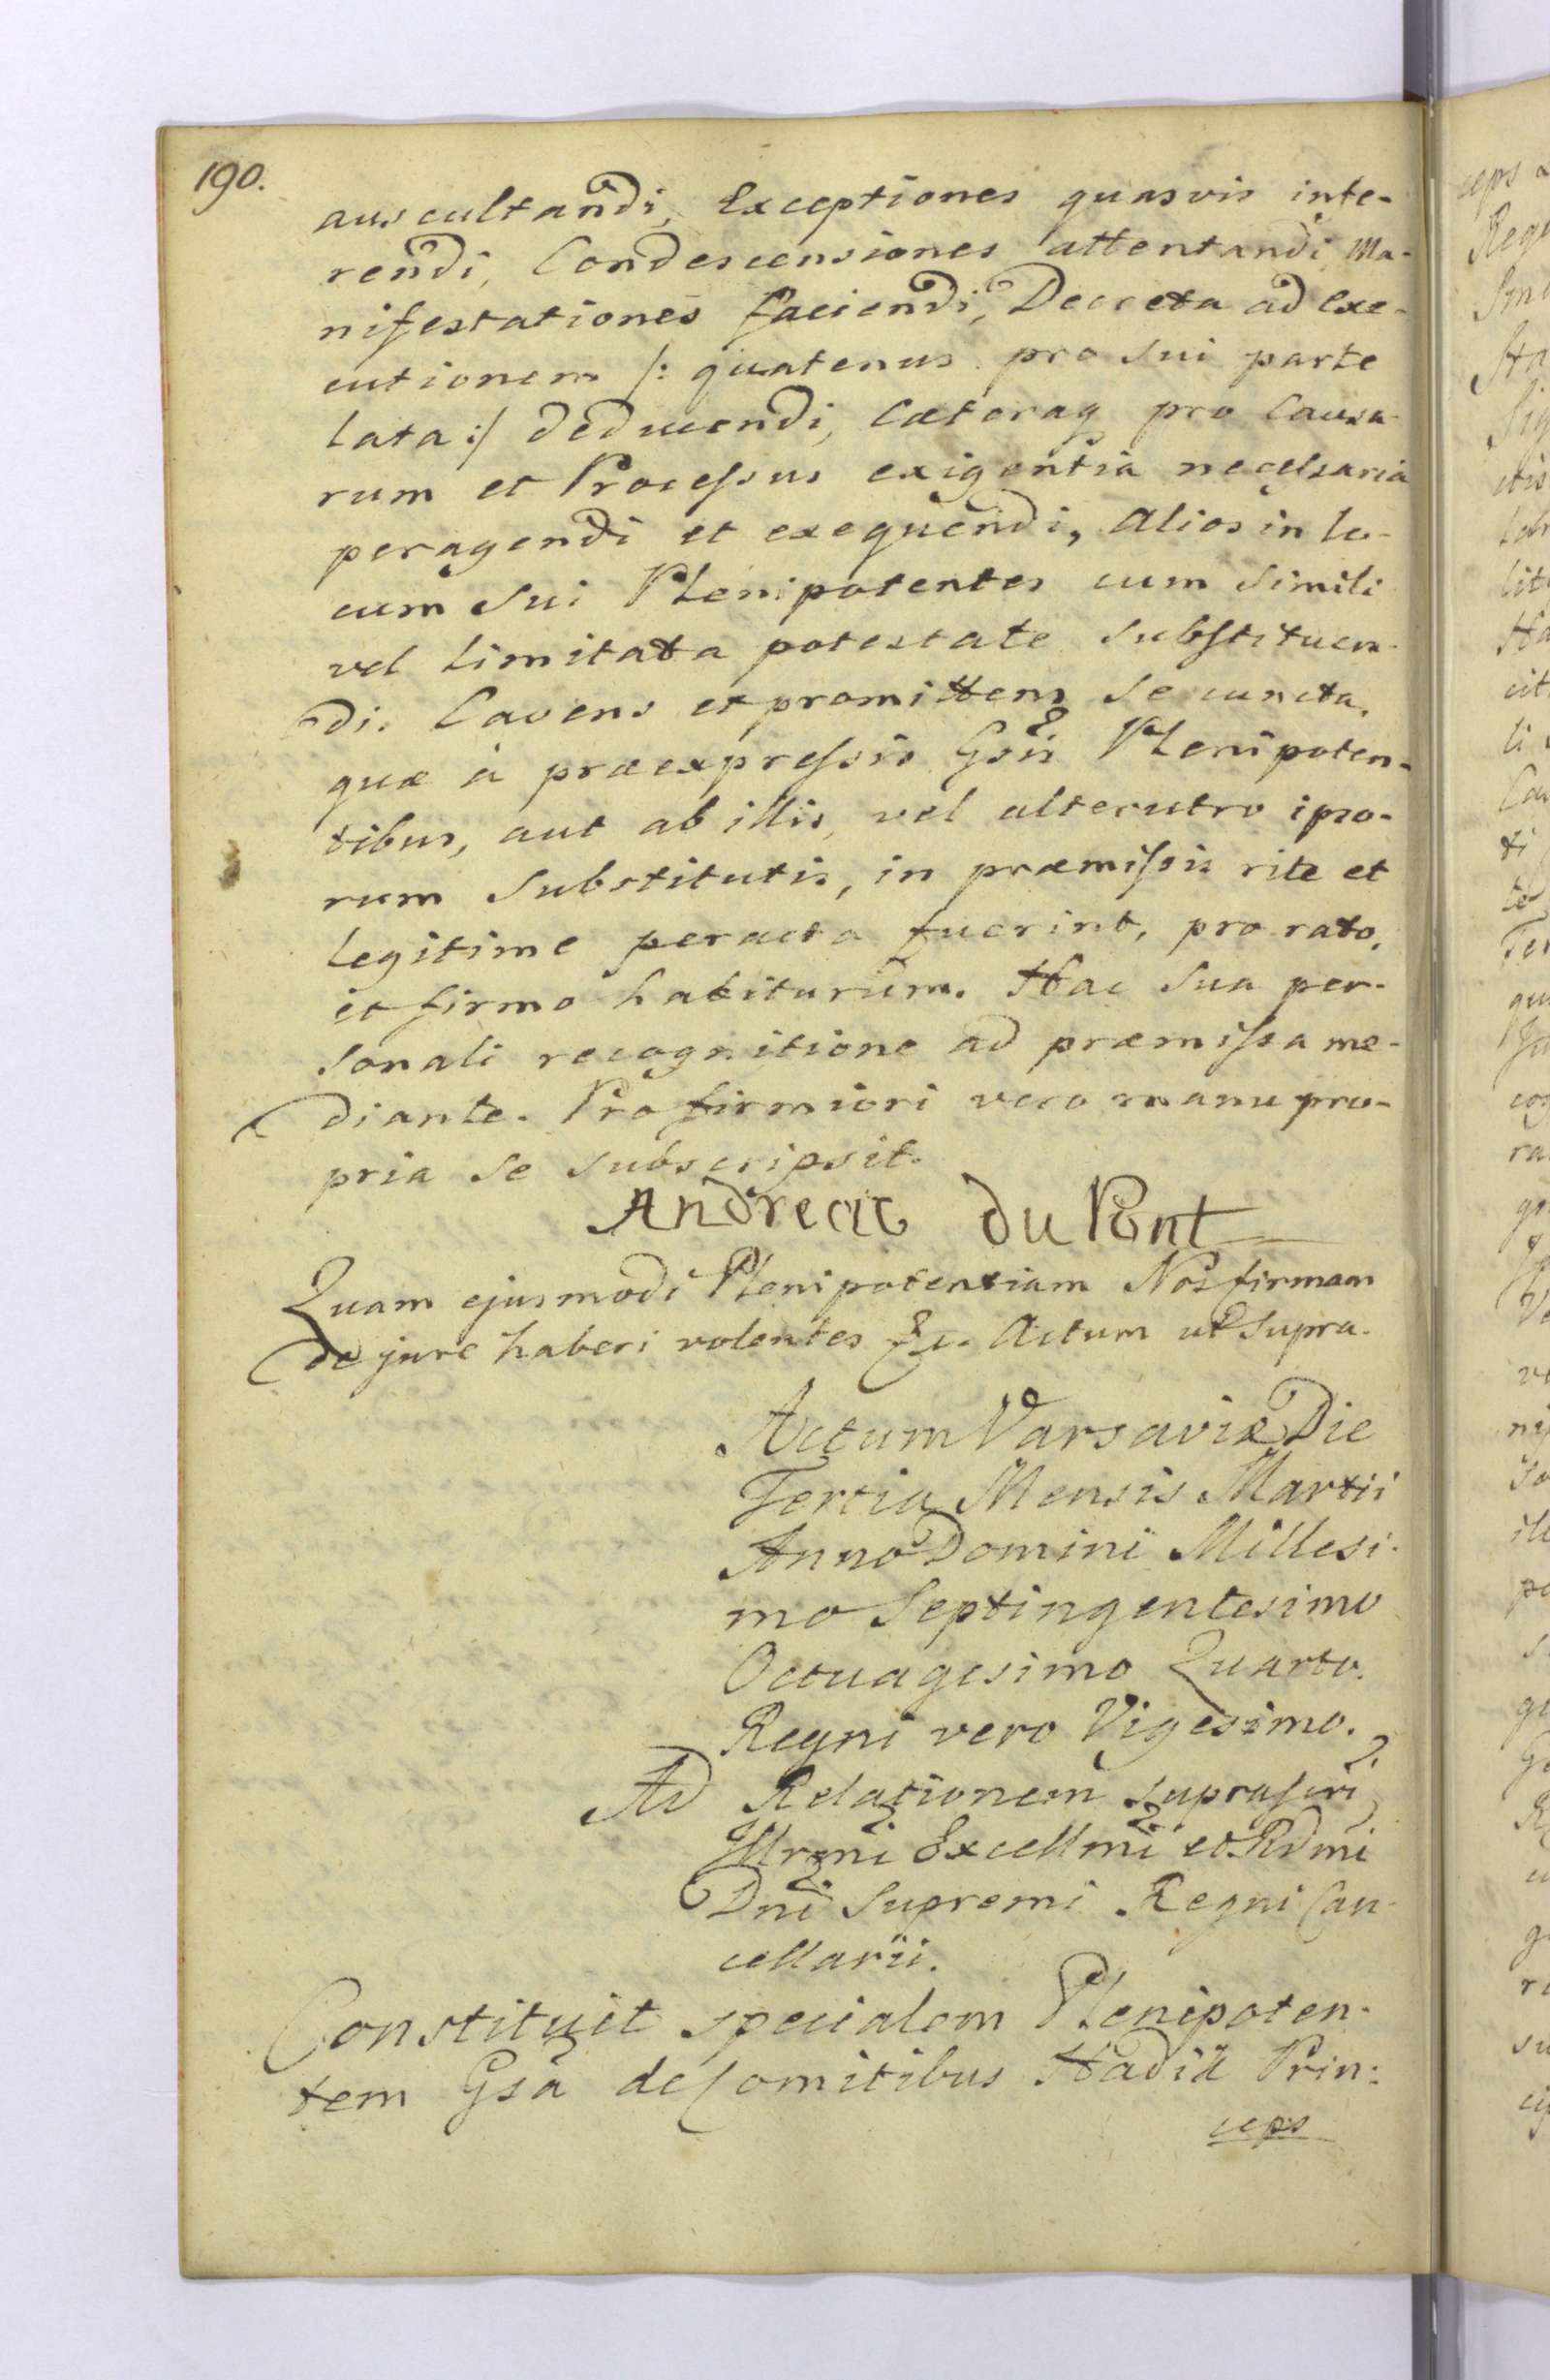 190.
auscultandi, Exceptiones quasvis infe-
rendi, Condescensiones attentandi, Ma-
nifestationes faciendi, Decreta ad Exe-
cutionem /: quatenus pro sui parte
lata :/ deducendi, Cæteraq pro Causa-
rum et Processus exigentia necessaria
peragendi et exequendi, Alios in lo-
cum sui Plenipotentes cum simili
vel limitata potestate substituen-
di. Cavens et promittens se cuncta,
quæ à præexpressis Gsis Plenipoten-
tibus, aut ab illis, vel alterutro ipso-
rum substitutis, in præmissis rite et
legitime peracta fuerint, pro rato,
et firmo habiturum. Hac sua per-
sonali recognitione ad præmissa me-
diante. Pro firmiori vero manu pro-
pria se subscripsit.
Andreas du Pont
Quam ejusmodi Plenipotentiam Nos firmam
de jure haberi volentes &c. Actum ut supra.
Actum Varsaviæ Die
Tertia Mensis Martii
Anno Domini Millesi-
mo Septingentesimo
Octuagesimo Quarto.
Regni vero Vigesimo.
Ad Relationem suprascri
Illrmi Excellmi et Rdmi
Dni Supremi Regni Can-
cellarii.
Constituit specialem Plenipoten-
tem Gsa de Comitibus Hadik Prin:
ceps
ceps